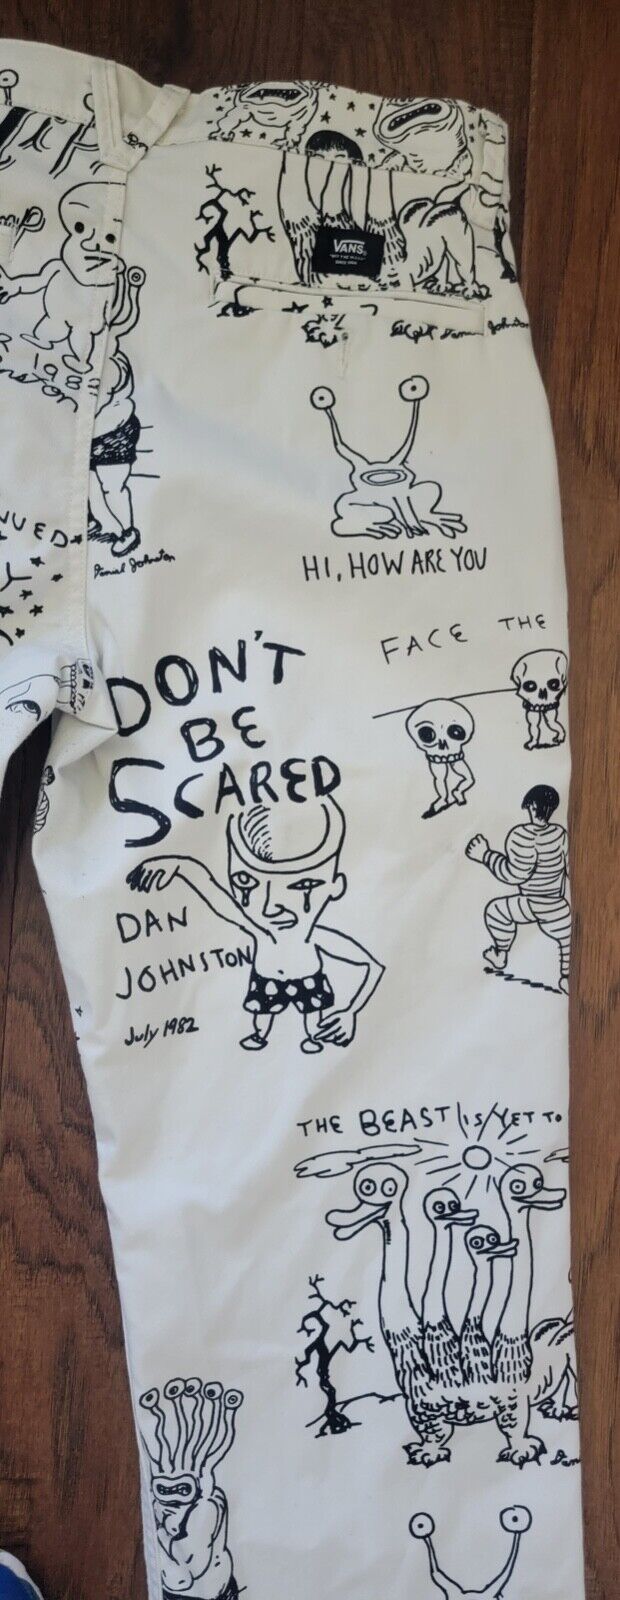 VANS
"OFF THE WALL"
Daniel Johnston
198
nston
NUED
Y
Daniel Johnston
HI, HOW ARE YOU
FACE THE
DON'T
BE
SCARED
DAN
JOHNSTON
July 1982
THE BEAST IS YET TO
Dan